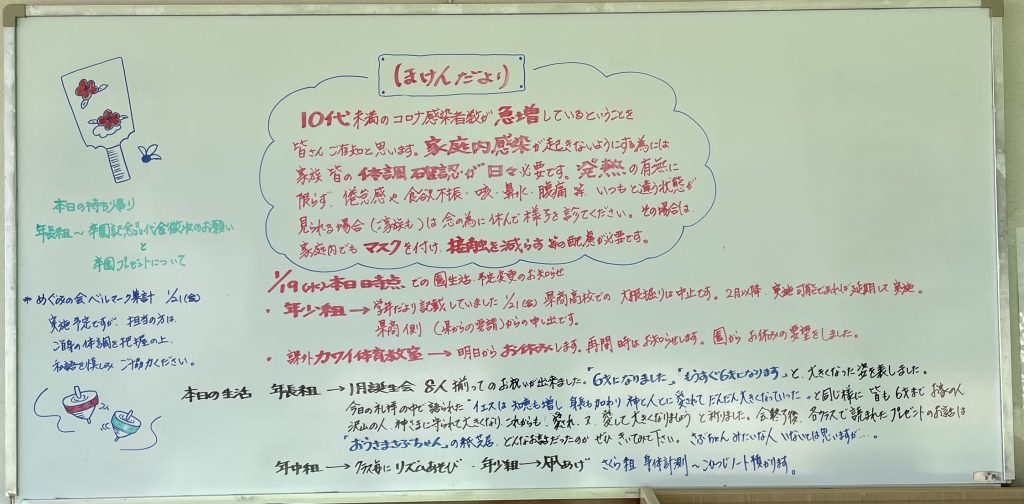 ほけんだより
10代未満のコロナ感染者数が急増しているということを
皆さんご存知と思います。家庭内感染が起きないようにする為には
家族皆の体調確認が日々必要です。発熱の有無に
限らず、倦怠感や食欲不振・咳・鼻水・腹痛等 いつもと違う状態が
見られる場合(ご家族も)は念の為に休んで様子を診てください。その場合は、
家庭内でもマスクを付け、接触を減らす等の配慮が必要です。
本日の持ち帰り
年長組〜卒園記念品代金徴収のお願い
と
卒園プレゼントについて
*めぐみの会ベルマーク集計 1/21(金)
実施予定ですが、担当の方は、
ご自身の体調を把握の上、
私語を慎しみ ご協力ください。
1/19(水)本日時点での園生活・予定変更のお知らせ
・年少組→学年だより記載していました1/21(金)県商高校での大根掘りは中止です。2月以降、実施可能であれば延期して実施。
県商側(県からの要請)からの申し出です。
・課外カワイ体育教室→明日からお休みします。再開時はお知らせします。園からお休みの要望をしました。
本日の生活 年長組→1月誕生会 8人揃ってのお祝いが出来ました。「6才になりました」「もうすぐ6才になります」と、大きくなった姿を表しました。
今日の礼拝の中で語られた"イエスは知恵も増し 年長も加わり 神と人とに愛されてだんだん大きくなっていった。と同じ様に 皆も6才まで
沢山の人、神さまに守られて大きくなり、これからも、愛され、又、愛して大きくなりましょう と祈りました。会終了後、各クラスで読まれたプレゼントのお話は
「おうさまさぶちゃん」の紙芝居、どんなお話だったのか ぜひ きいてみて下さい。さぶちゃん みたいな人 いないとは思いますが…。
年中組→クラス毎にリズムあそび・年少組→凧あげ さくら組 身体計測〜こひつじノート積がります。